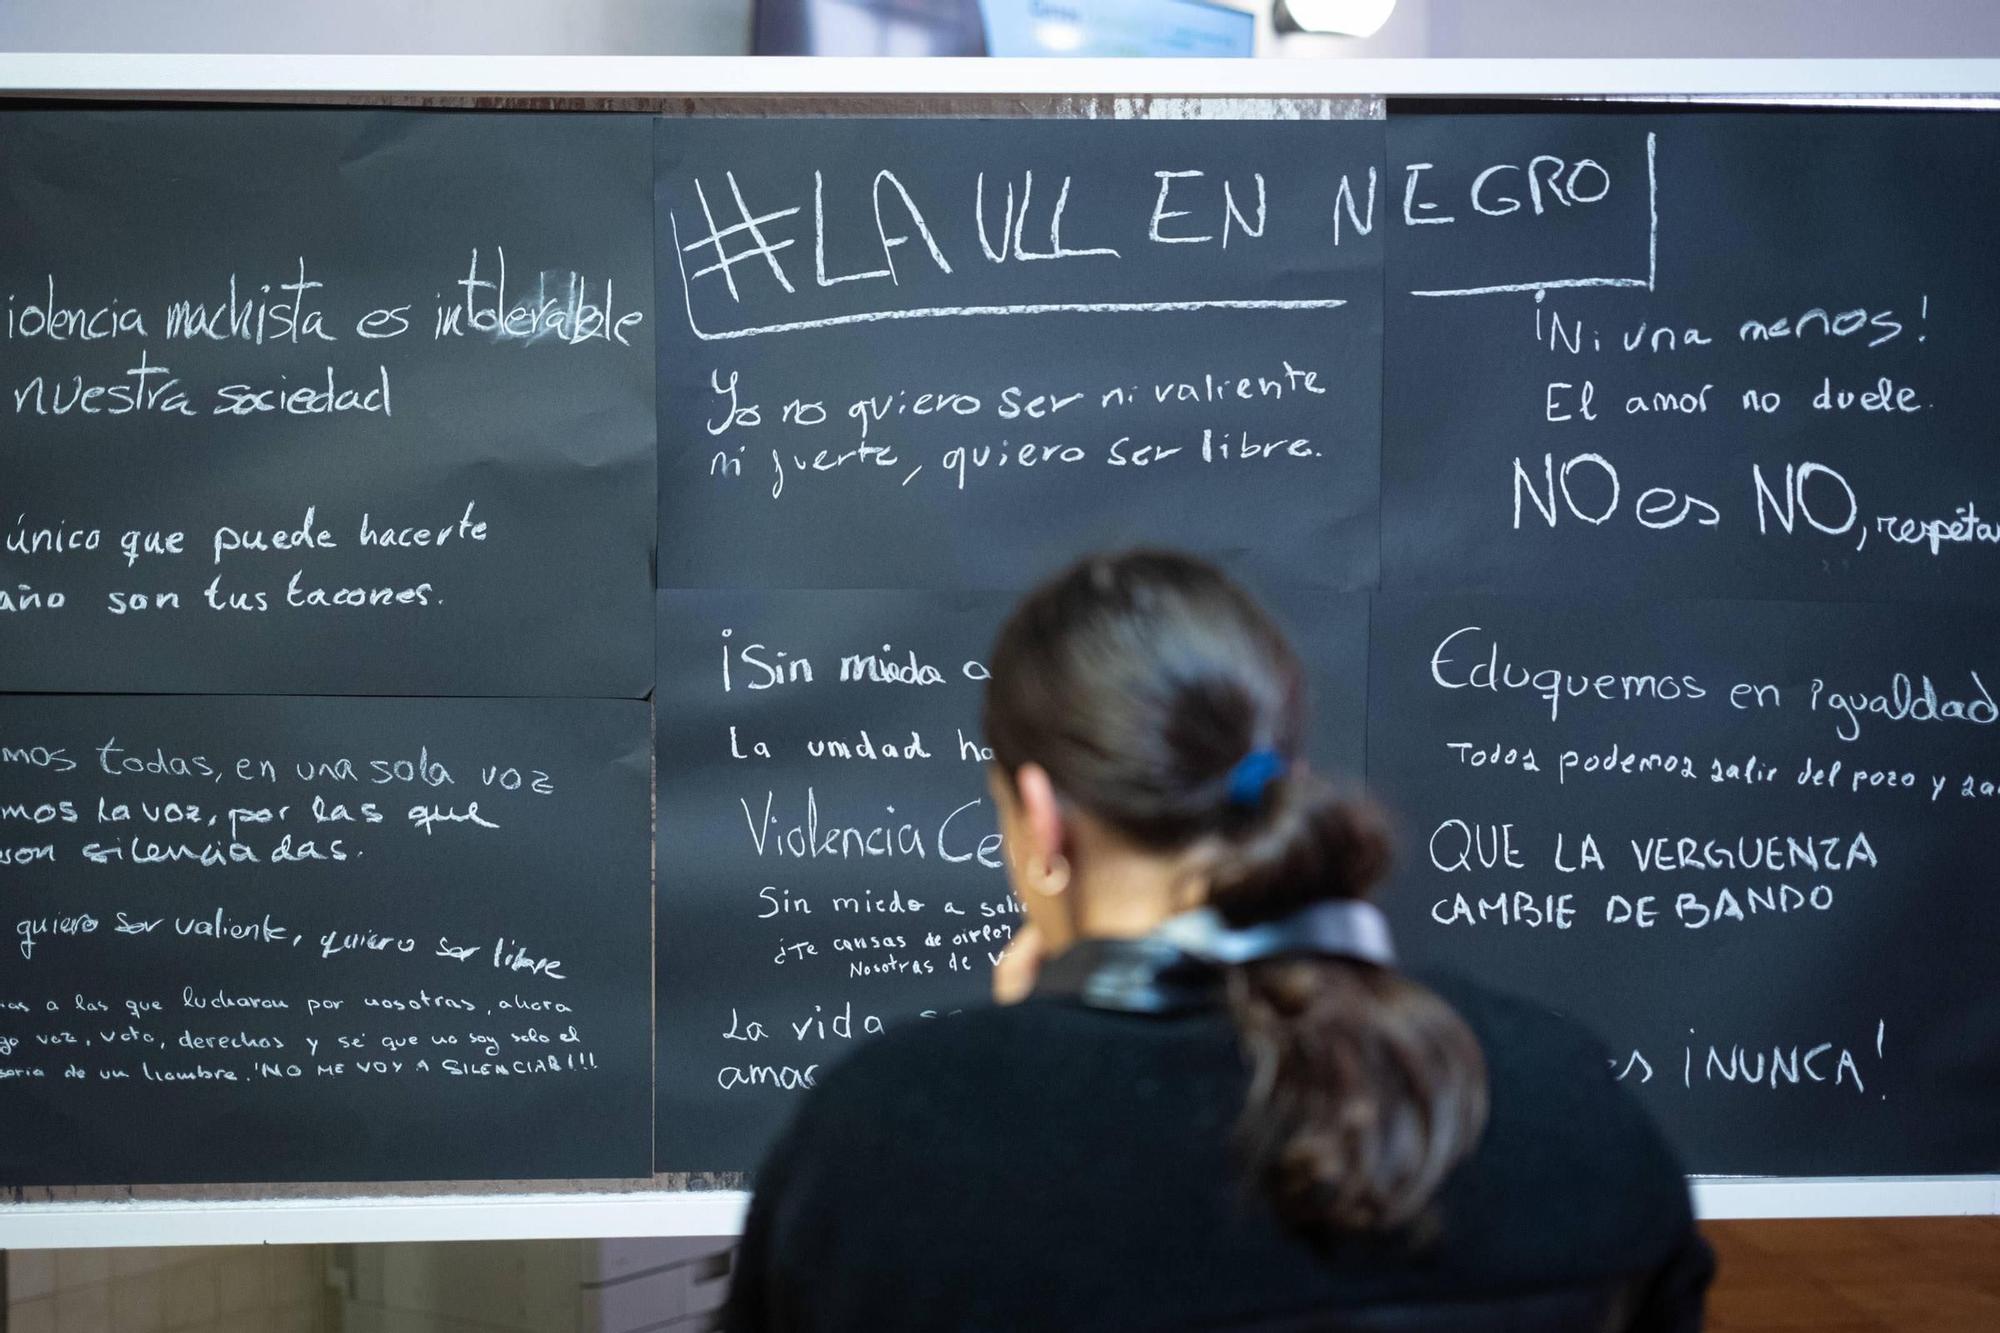 #LA ULL EN NEGRO
iolencia machista es intolerable
nuestra sociedad
único que puede hacerte
año son tus tacones.
mos todas, en una sola voz
mos la voz, por las que
son silenciadas.
quiero ser valiente, quiero ser libre
as a las que lucharon por nosotras, ahora
go voz, voto, derechos y sé que no soy solo el
soria de un hombre. ¡NO ME VOY A SILENCIAR!!!
Yo no quiero ser ni valiente
ni fuerte, quiero ser libre.
¡Sin miedo a
La unidad ha
Violencia Ce
Sin miedo a salir
¿Te cansas de oirlo?
Nosotras de v
La vida
amar
¡Ni una menos!
El amor no duele.
NO es NO, respeta
Eduquemos en igualdad
Todos podemos salir del pozo y
QUE LA VERGUENZA
CAMBIE DE BANDO
¡NUNCA!